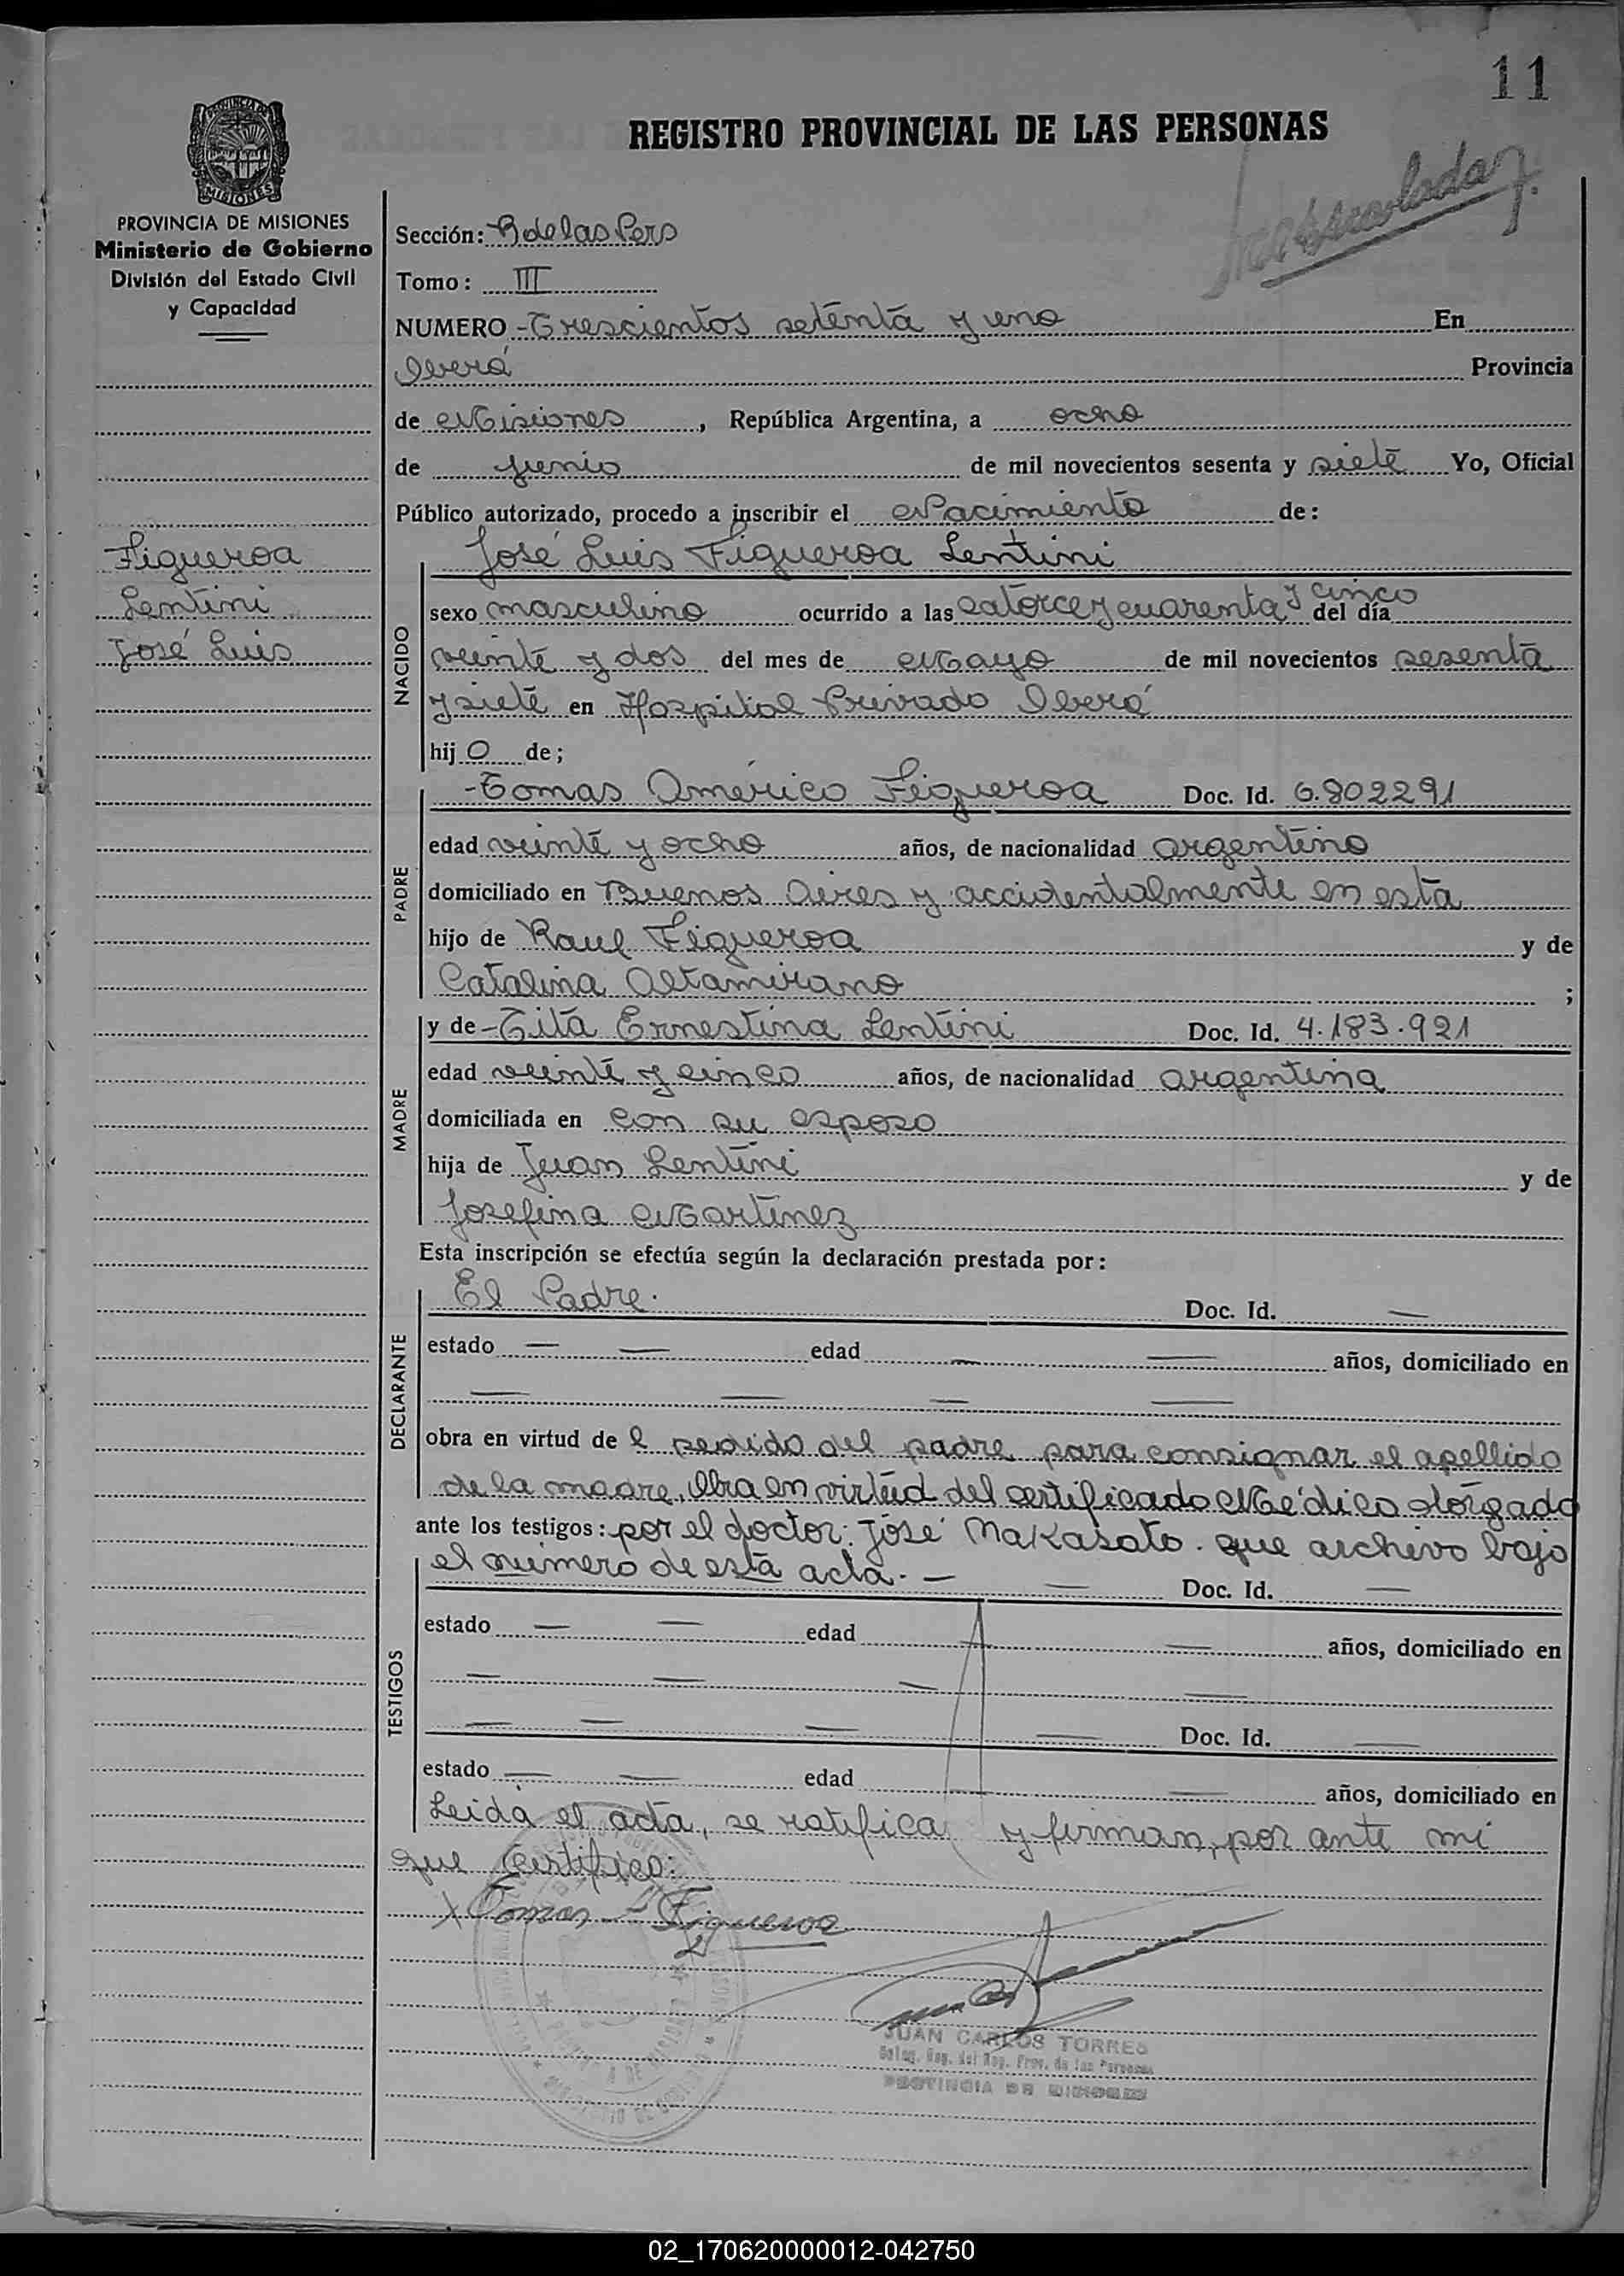 11
REGISTRO PROVINCIAL DE LAS PERSONAS
PROVINCIA DE
MISIONES
PROVINCIA DE MISIONES
Ministerio de Gobierno
División del Estado Civil
y Capacidad
Figueroa
Lentini
José Luis
Sección: R de las Pers
Tomo: III
NUMERO Trescientos setenta y uno En
Oberá Provincia
de Misiones, República Argentina, a ocho
de junio de mil novecientos sesenta y siete Yo, Oficial
Público autorizado, procedo a inscribir el Nacimiento de:
José Luis Figueroa Lentini
NACIDO
sexo masculino ocurrido a las catorce y cuarenta y cinco del día
veinte y dos del mes de Mayo de mil novecientos sesenta
y siete en Hospital Privado Oberá
hij o de;
PADRE
Tomas Américo Figueroa Doc. Id. 6.802291
edad veinte y ocho años, de nacionalidad argentino
domiciliado en Buenos Aires y accidentalmente en esta
hijo de Raul Figueroa y de
Catalina Altamirano ;
MADRE
y de Tita Ernestina Lentini Doc. Id. 4.183.921
edad veinte y cinco años, de nacionalidad argentina
domiciliada en con su esposo
hija de Juan Lentini y de
Josefina Martinez
Esta inscripción se efectúa según la declaración prestada por:
DECLARANTE
El Padre. Doc. Id. —
estado — — edad — — años, domiciliado en
— — — —
obra en virtud de l pedido del padre para consignar el apellido
de la madre, Obra en virtud del certificado Médico otorgado
ante los testigos: por el doctor: José Makasato. que archivo bajo
el número de esta acta. — — Doc. Id. —
TESTIGOS
estado — — edad — años, domiciliado en
— — — —
— — — — Doc. Id. —
estado — — edad — años, domiciliado en
Leida el acta, se ratifica y firman, por ante mi
que Certifico:
x Tomas A Figueroa
JUAN CARLOS TORRES
Deleg. Reg. del Reg. Prov. de las Personas
PROVINCIA DE MISIONES
02_170620000012-042750